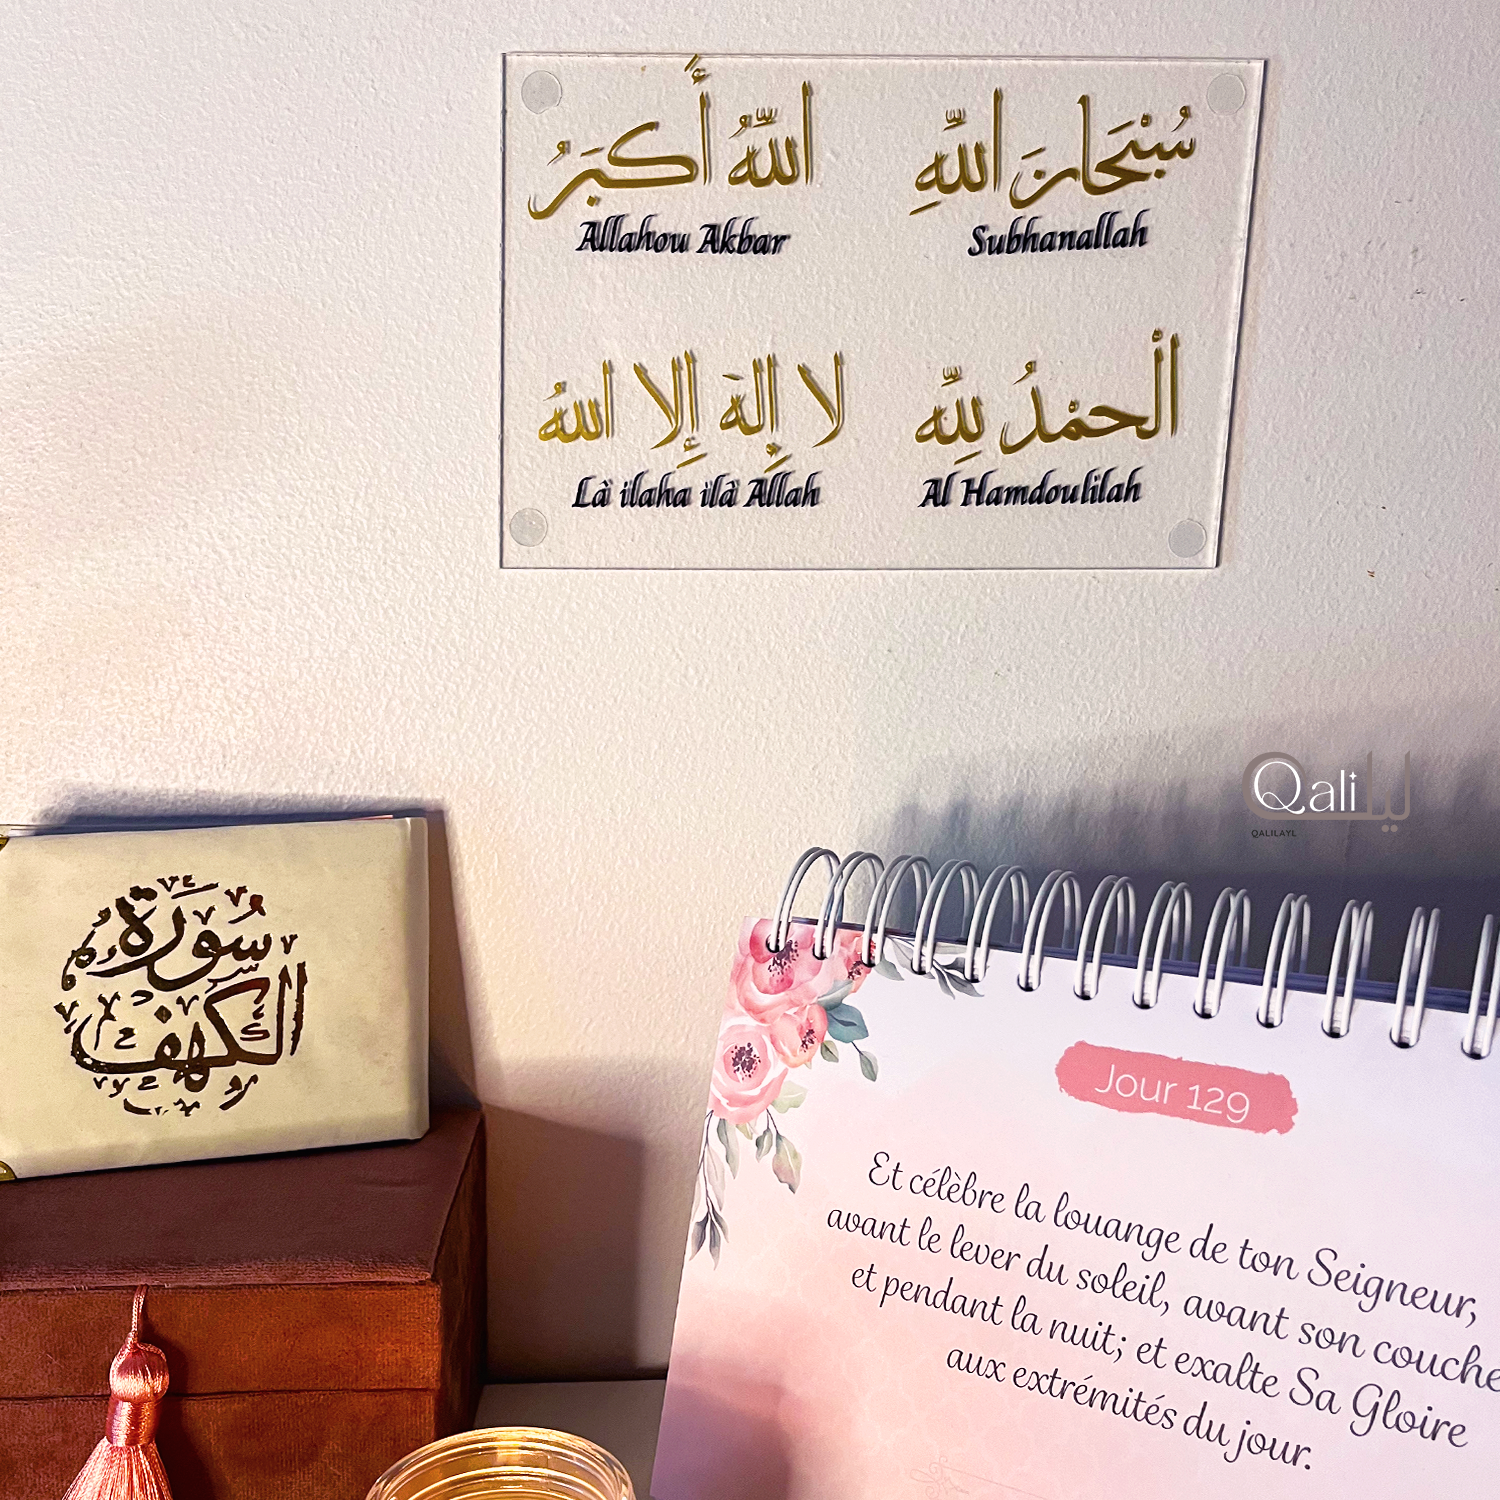 اللّهُ أَكبَرُ
Allahou Akbar
سُبْحَانَ اللّهِ
Subhanallah
لا إِلهَ إِلا اللهُ
Là ilaha ilà Allah
الْحَمْدُ لِلّهِ
Al Hamdoulilah
Qali ليل
QALILAYL
سُورَة
الكهف
Jour 129
Et célèbre la louange de ton Seigneur,
avant le lever du soleil, avant son couche
et pendant la nuit; et exalte Sa Gloire
aux extrémités du jour.